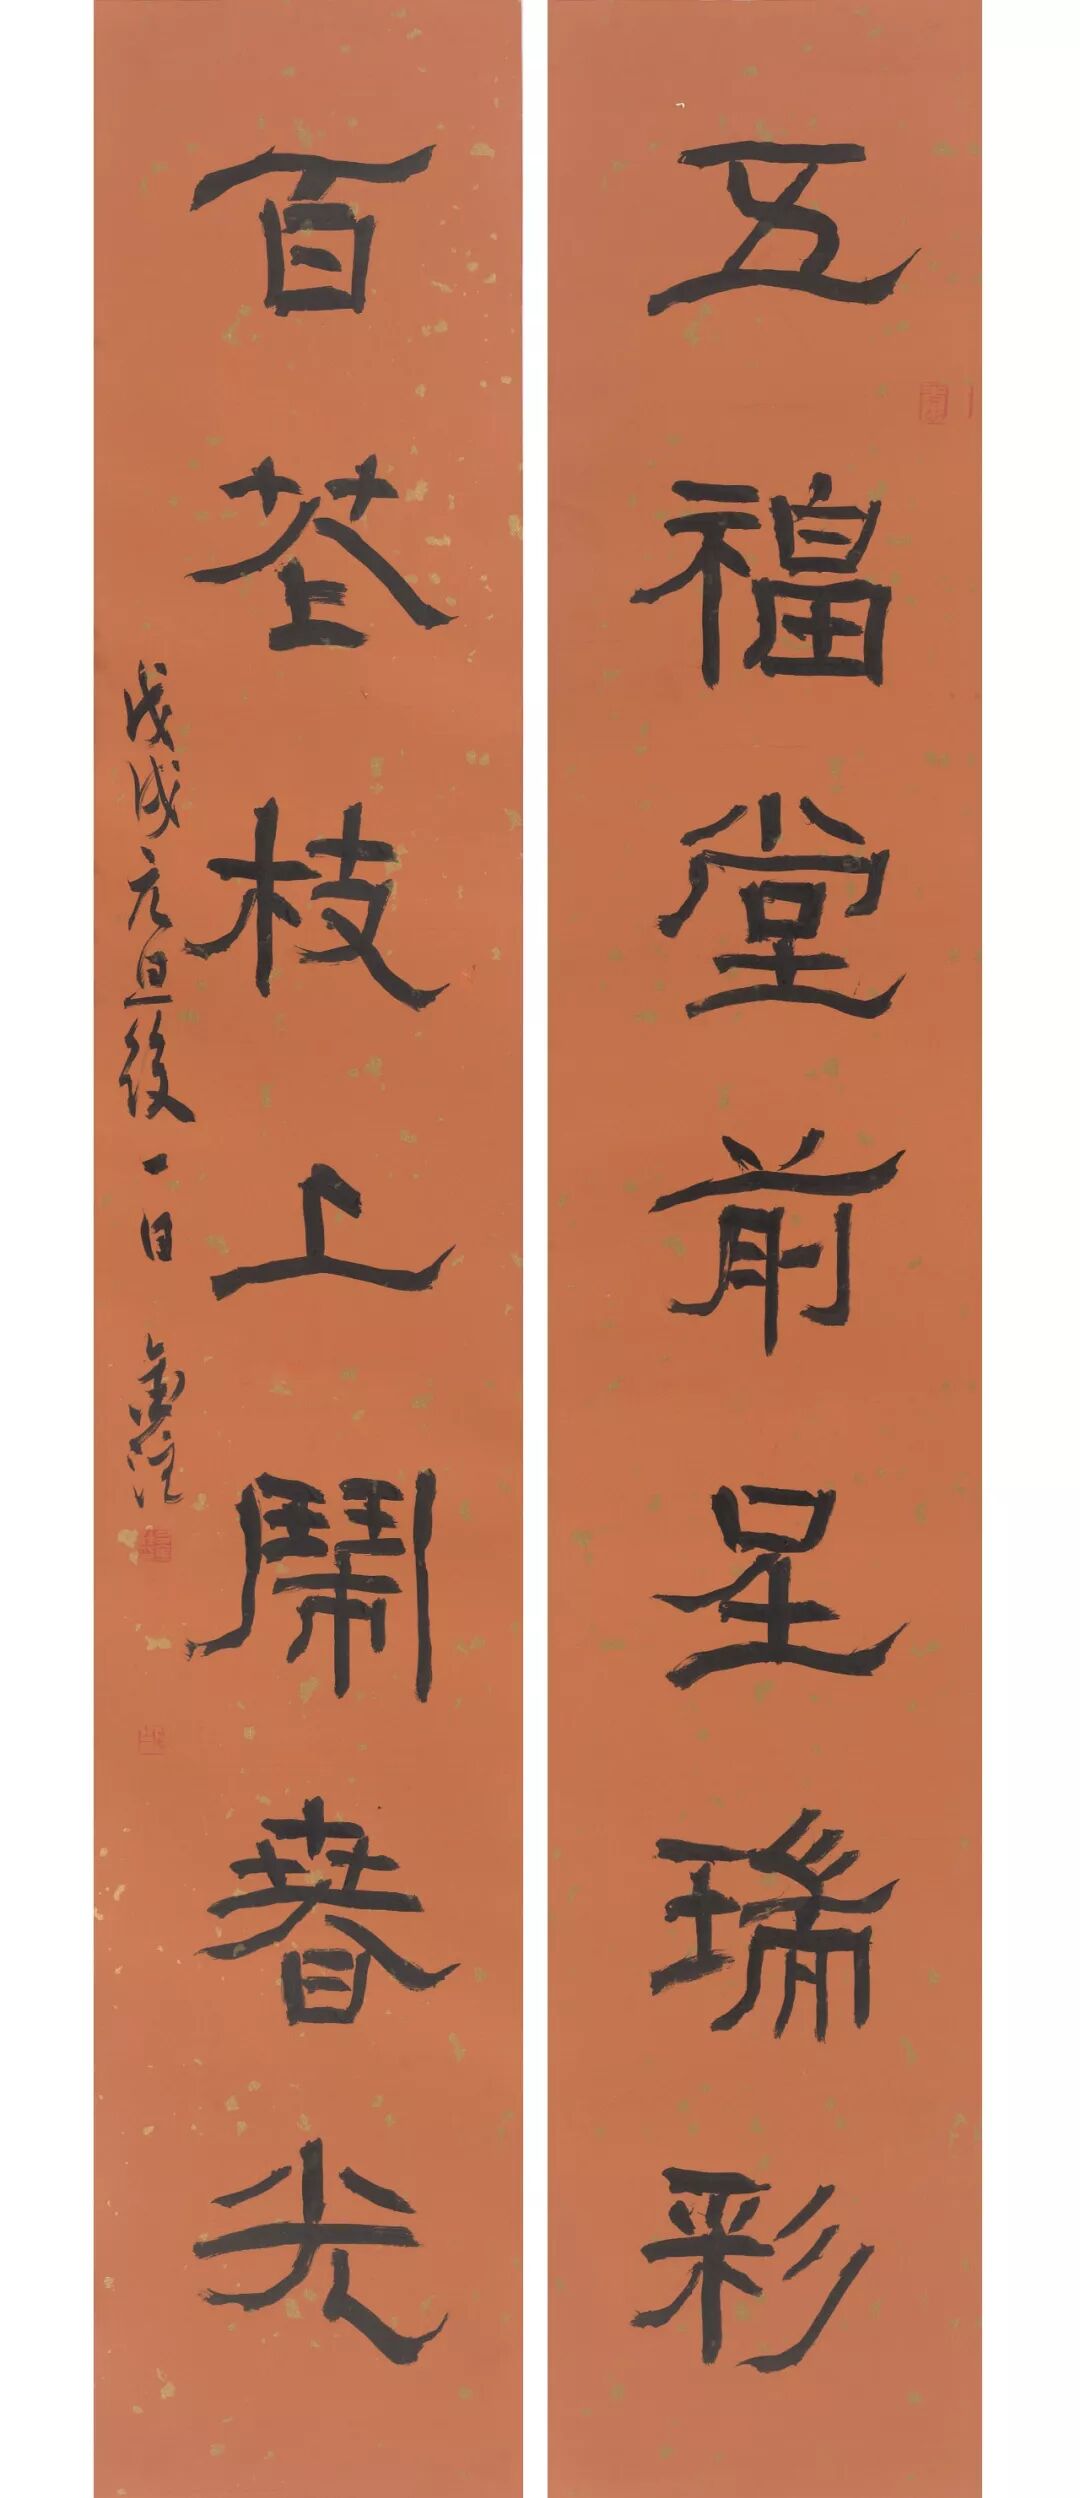 五福堂前呈瑞彩
百花枝上鬧春光
戊戌元旦後一日